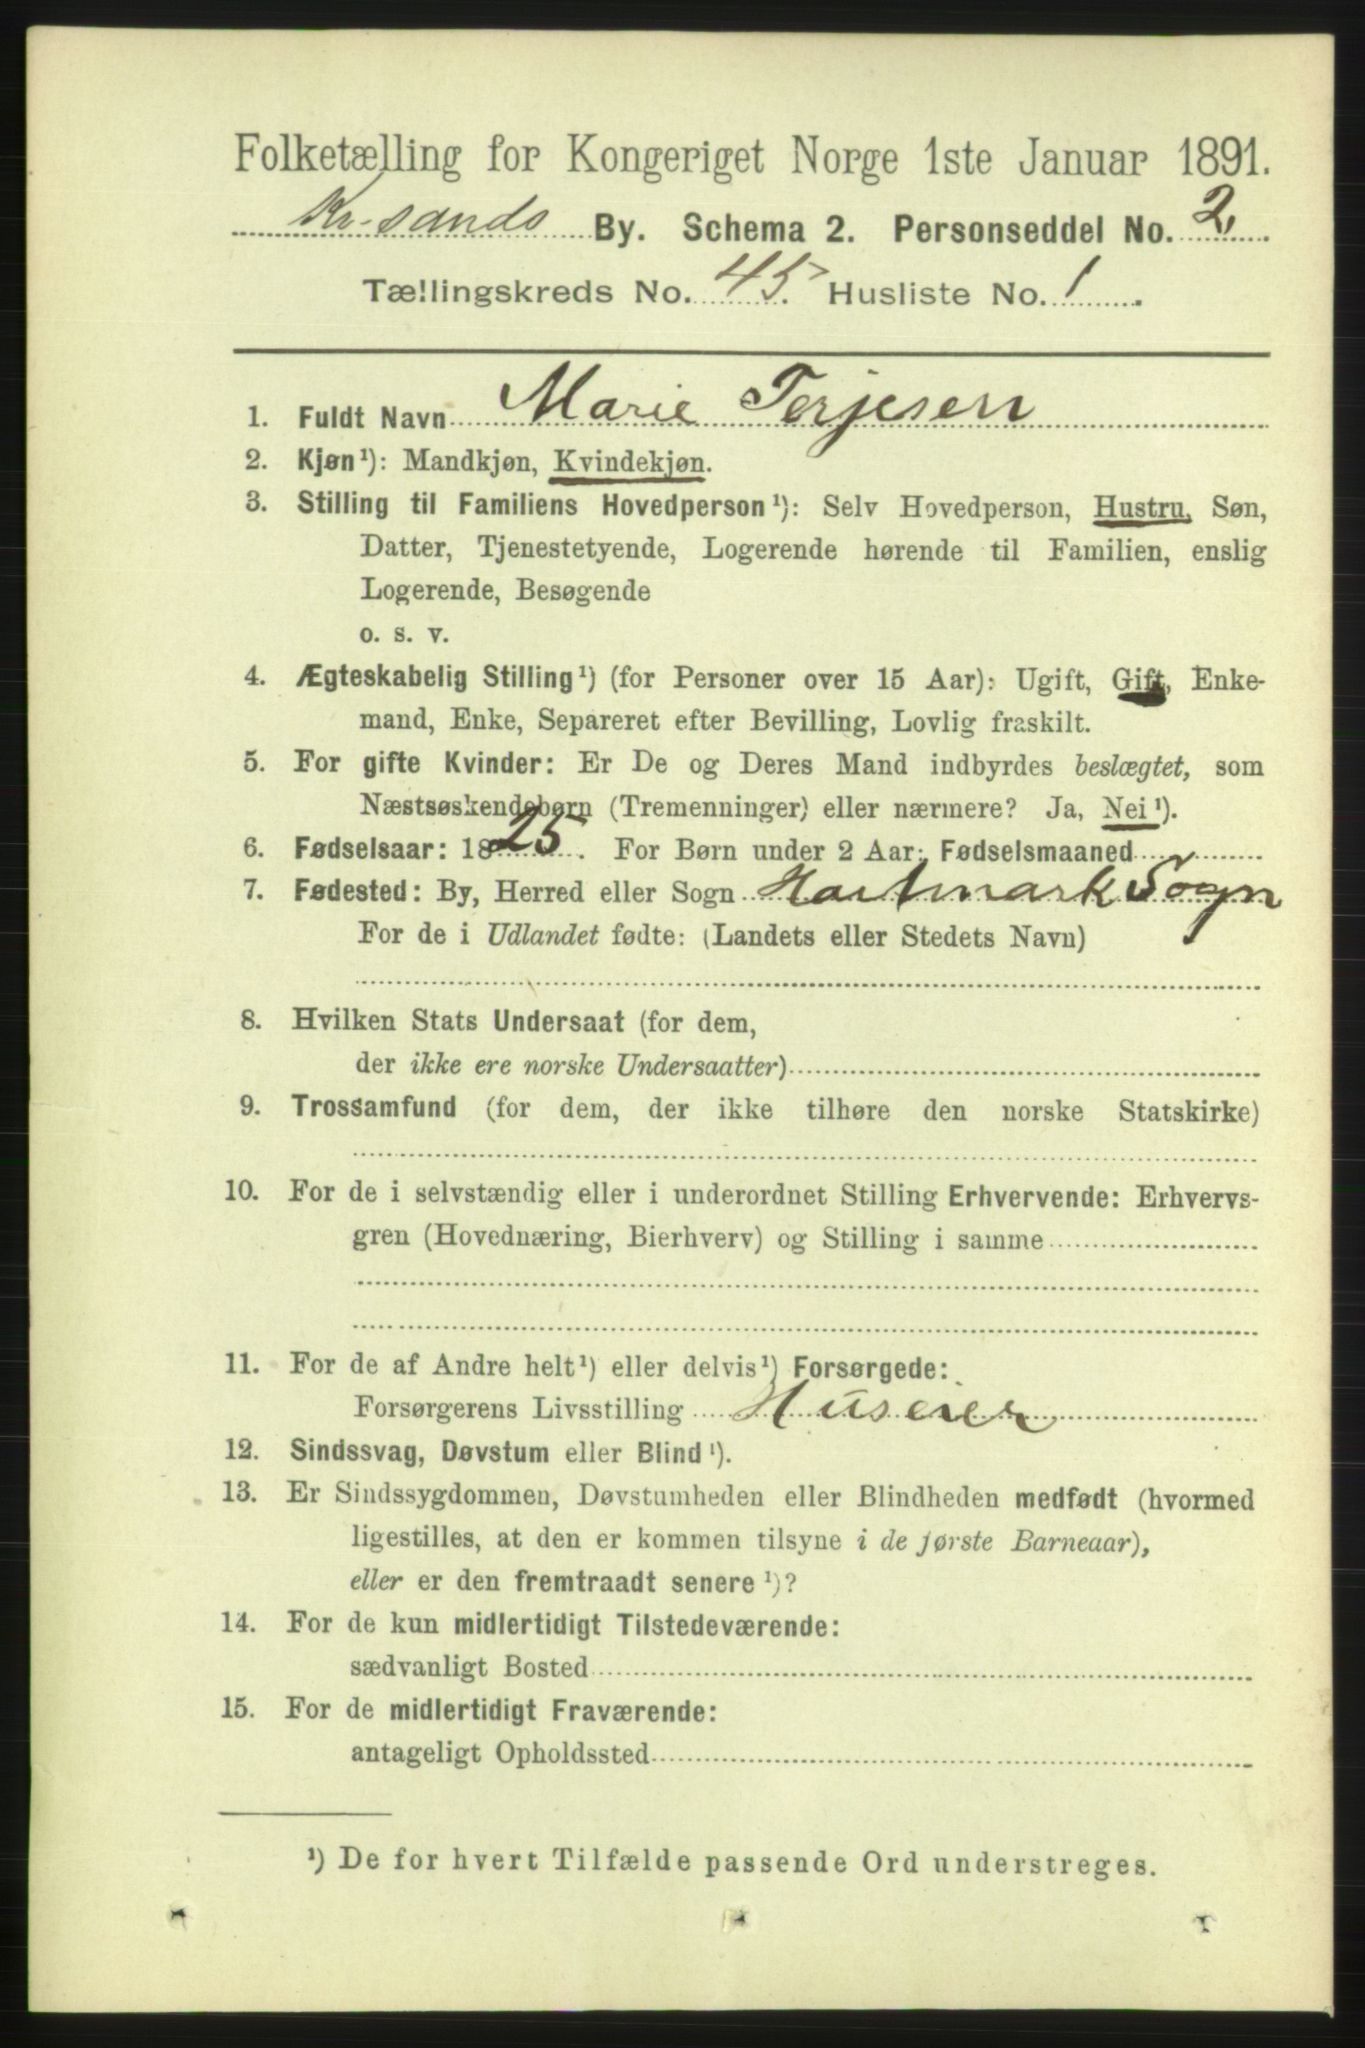 Folketælling for Kongeriget Norge 1ste Januar 1891.
Kr-sands By. Schema 2. Personseddel No. 2,
Tællingskreds No. 45. Husliste No. 1
1. Fuldt Navn Marie Terjesen
2. Kjøn¹): Mandkjøn, Kvindekjøn.
3. Stilling til Familiens Hovedperson¹): Selv Hovedperson, Hustru, Søn,
Datter, Tjenestetyende, Logerende hørende til Familien, enslig
Logerende, Besøgende
o. s. v.
4. Ægteskabelig Stilling¹) (for Personer over 15 Aar): Ugift, Gift, Enke-
mand, Enke, Separeret efter Bevilling, Lovlig fraskilt.
5. For gifte Kvinder: Er De og Deres Mand indbyrdes beslægtet, som
Næstsøskendebørn (Tremenninger) eller nærmere? Ja, Nei¹).
6. Fødselsaar: 1825. For Børn under 2 Aar: Fødselsmaaned
7. Fødested: By, Herred eller Sogn Hartmark Sogn
For de i Udlandet fødte: (Landets eller Stedets Navn)
8. Hvilken Stats Undersaat (for dem,
der ikke ere norske Undersaatter)
9. Trossamfund (for dem, der ikke tilhøre den norske Statskirke)
10. For de i selvstændig eller i underordnet Stilling Erhvervende: Erhvervs-
gren (Hovednæring, Bierhverv) og Stilling i samme
11. For de af Andre helt¹) eller delvis¹) Forsørgede:
Forsørgerens Livsstilling Huseier
12. Sindssvag, Døvstum eller Blind¹).
13. Er Sindssygdommen, Døvstumheden eller Blindheden medfødt (hvormed
ligestilles, at den er kommen tilsyne i de første Barneaar),
eller er den fremtraadt senere¹)?
14. For de kun midlertidigt Tilstedeværende:
sædvanligt Bosted
15. For de midlertidigt Fraværende:
antageligt Opholdssted
¹) De for hvert Tilfælde passende Ord understreges.